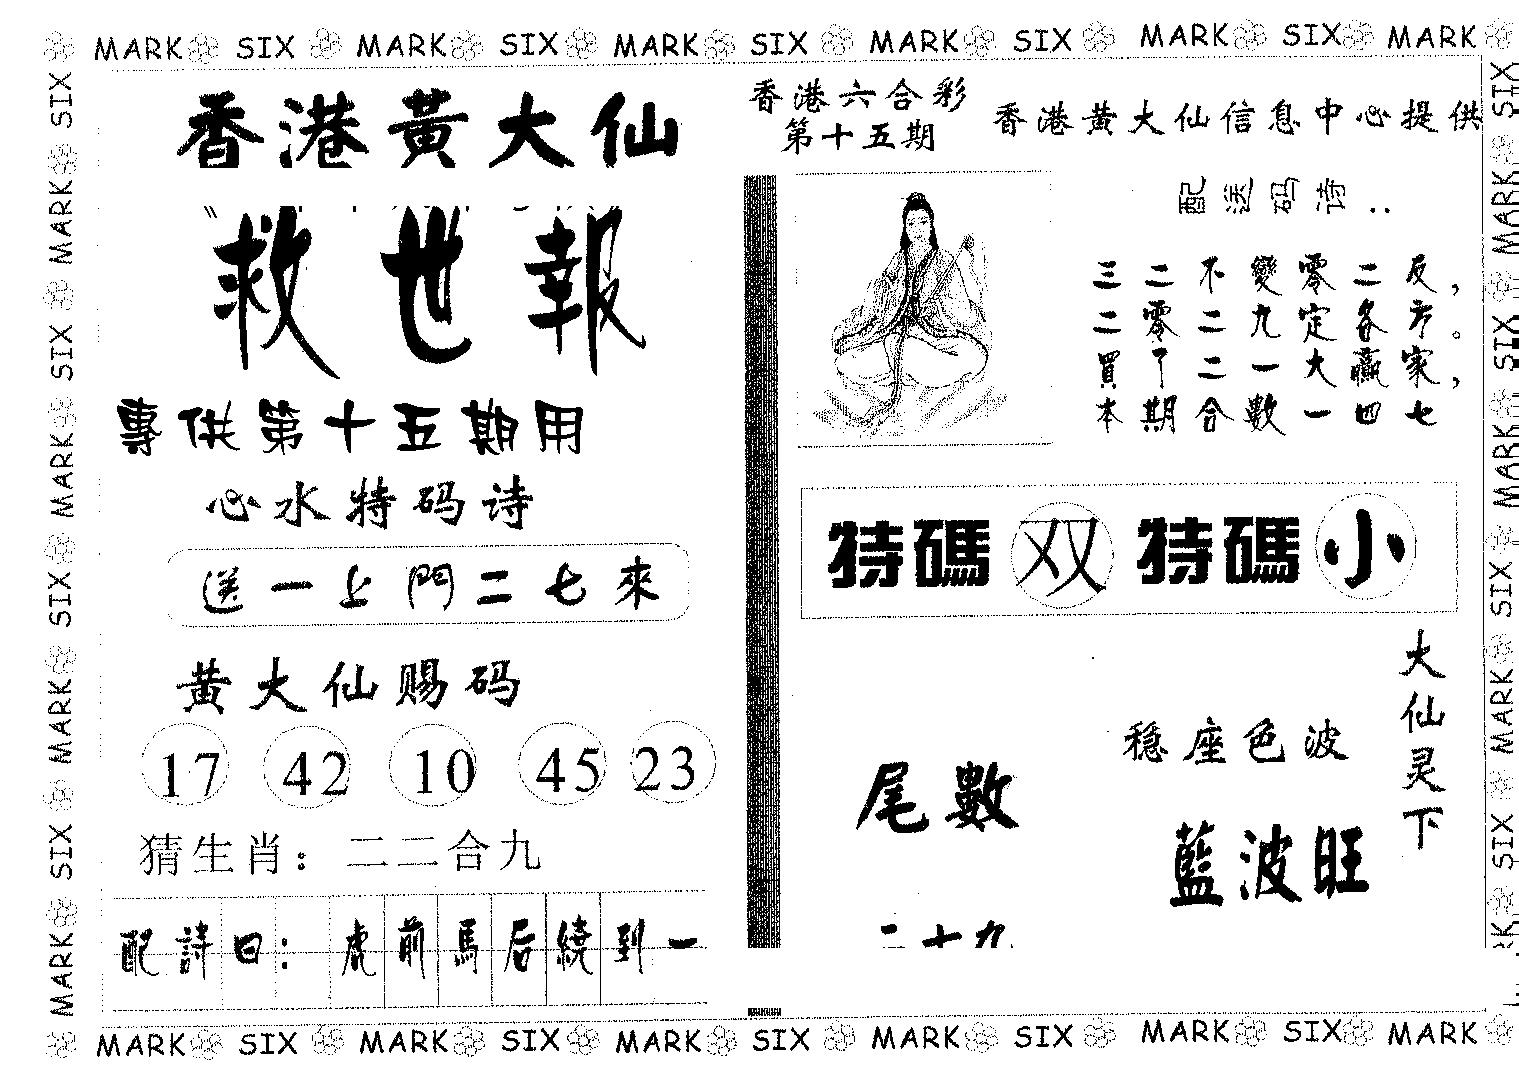 MARK SIX MARK SIX MARK SIX MARK SIX MARK SIX MARK
香港黃大仙
救世報
專供第十五期用
心水特码诗
送一上門二七來
黄大仙赐码
17 42 10 45 23
猜生肖：二二合九
配詩曰：虎前馬后繞到一
香港六合彩
第十五期
香港黄大仙信息中心提供
配送码诗：
三二不變零二反，
二零二九定各方。
買了二一大贏家，
本期合數一四七
特碼双特碼小
大仙灵下
穩座色波
藍波旺
尾數
二十九
MARK SIX MARK SIX MARK SIX MARK SIX MARK SIX MARK
SIX MARK SIX MARK SIX MARK SIX MARK
SIX MARK SIX MARK SIX MARK SIX